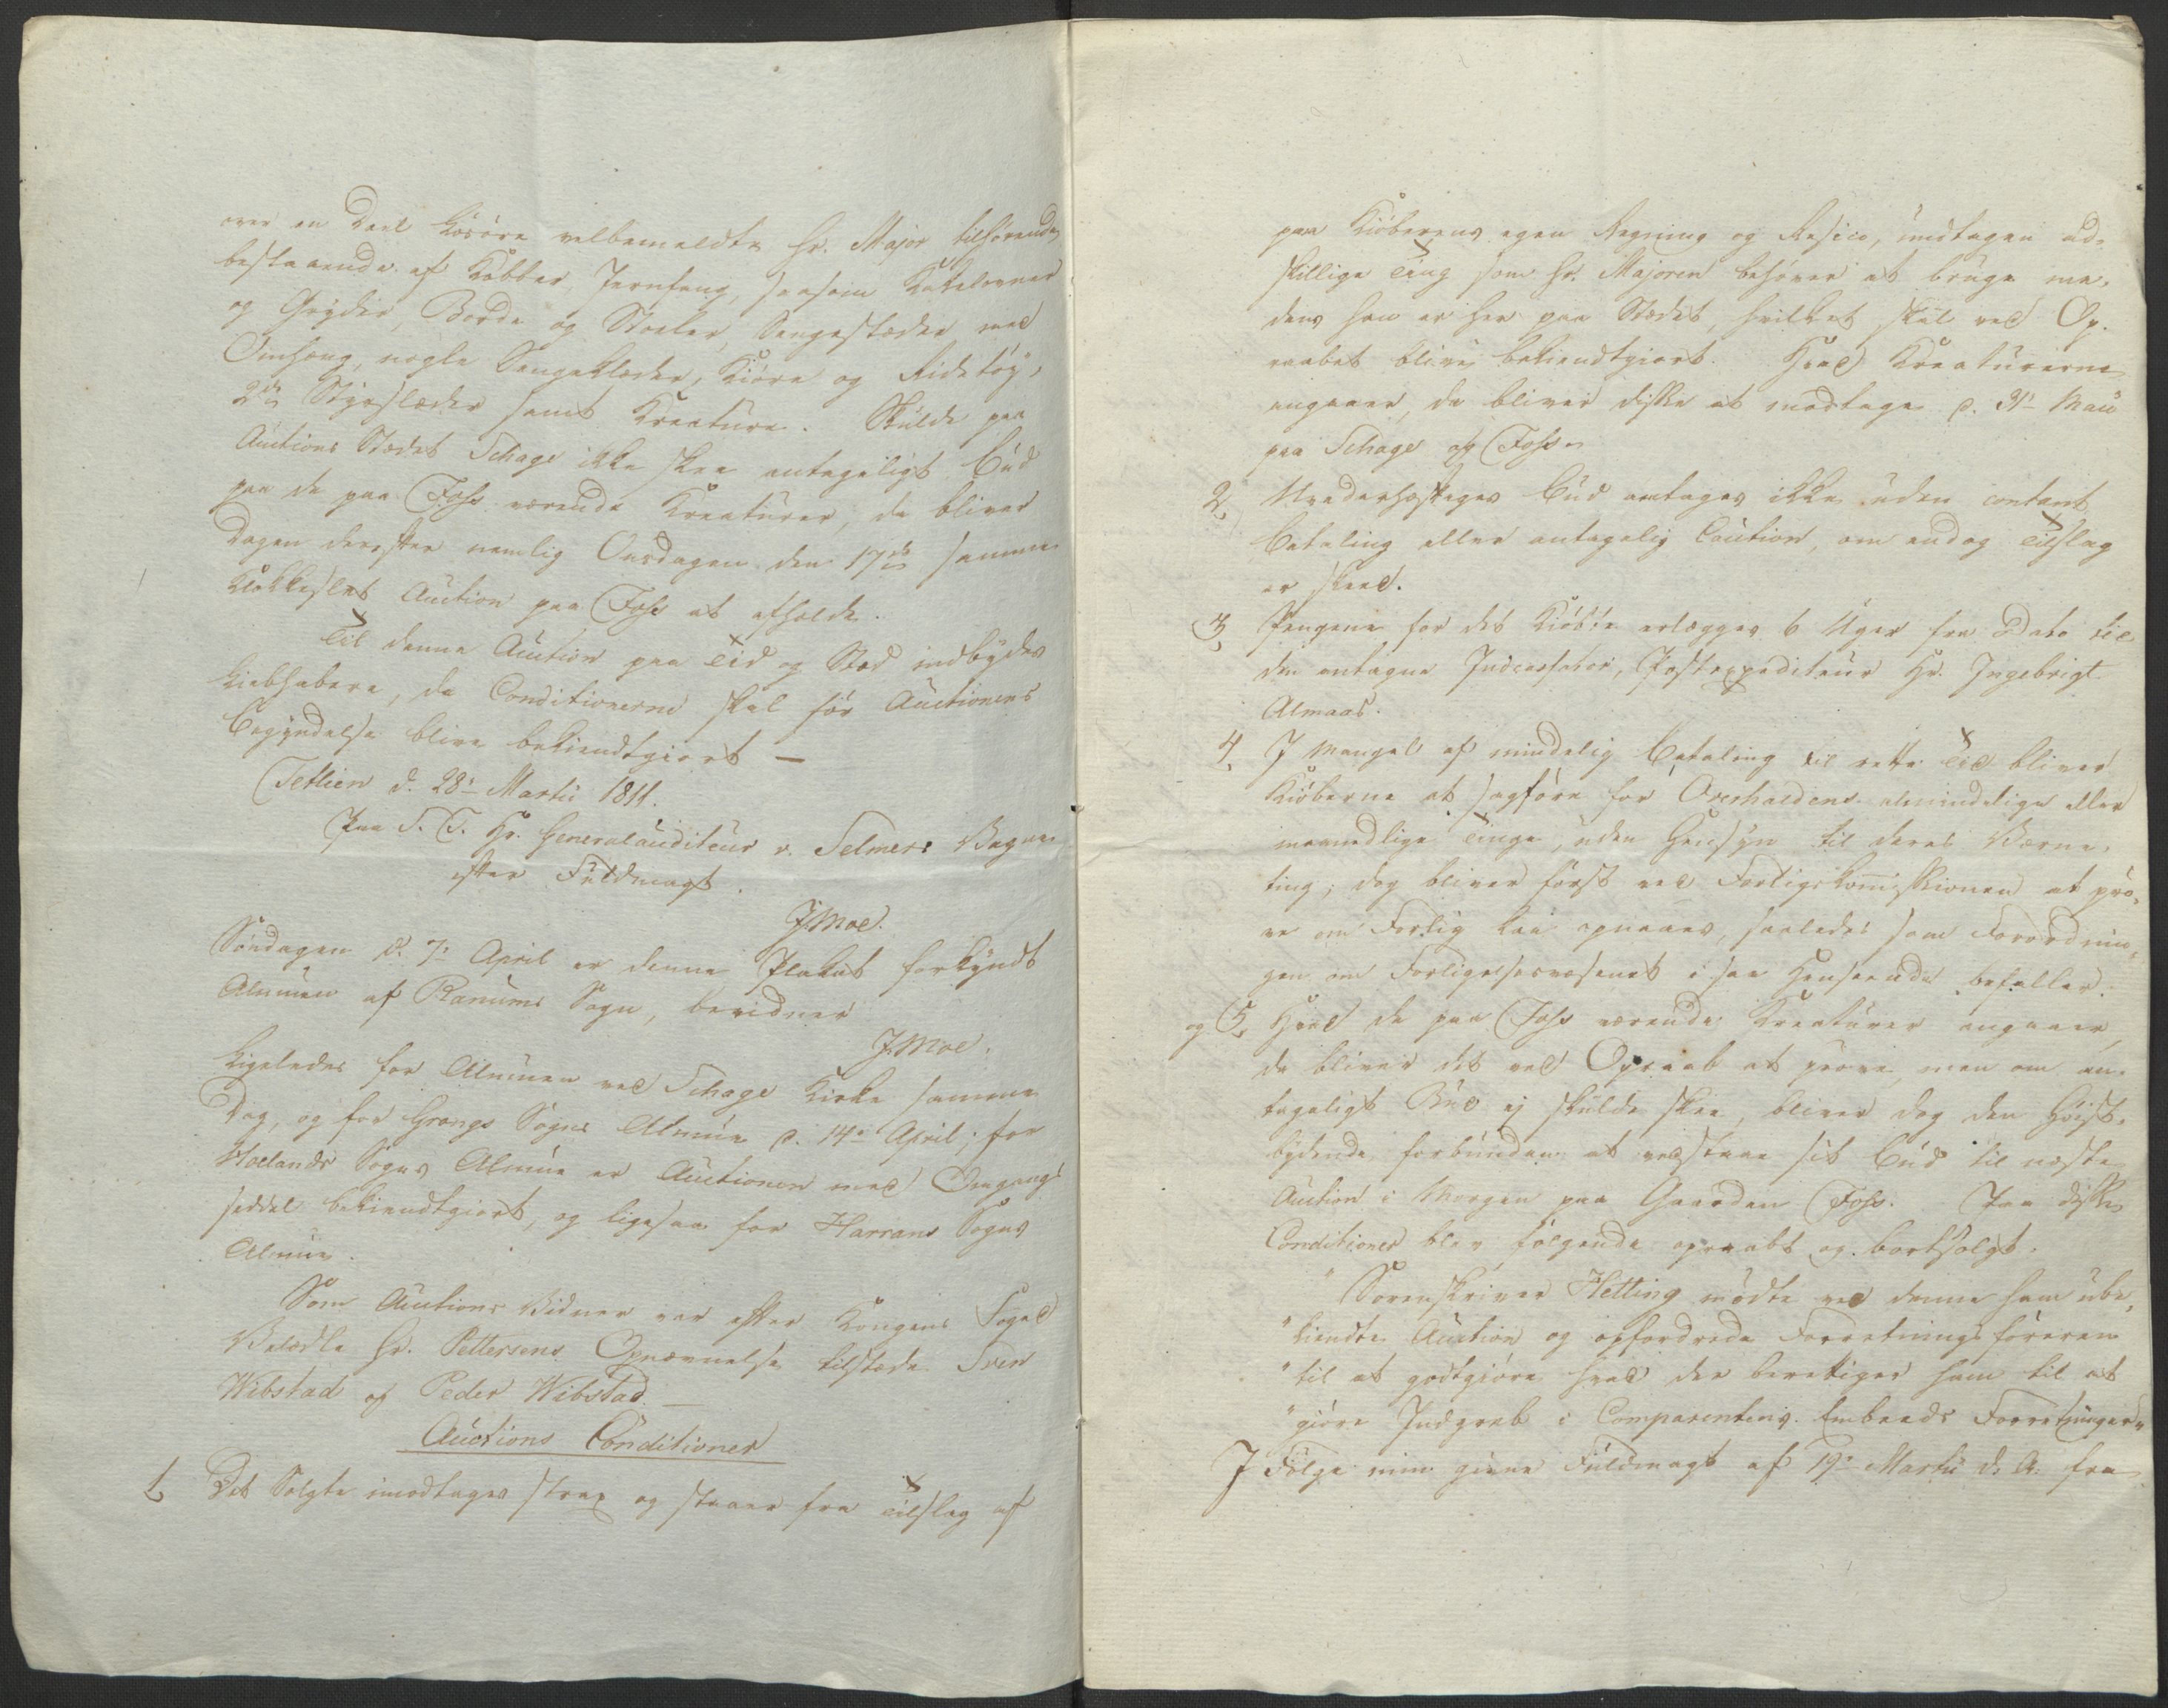 over en Deel Løsøre velbemeldte Hr. Major tilhørende,
bestaaende af Kobber, Jernfang, saasom Kakelovner
og Gryder, Borde og Stoeler, Sengestæder med
Omhæng, nogle Sengeklæder, Kiøre og Ridetøy,
2de Spidsslæder samt Kreature. Skulde paa
Auctions Stædet Schage ikke skee antageligt Bud
paa de paa Foss værende Kreaturer, da bliver
Dagen derefter nemlig Onsdagen den 17de samme
Klokkeslet Auction paa Foss at afholde.
Til denne Auction paa Tid og Stæd indbydes
Liebhabere, da Conditionerne skal før Auctionens
Begyndelse blive bekiendtgiort —
Tetlien d. 28de Martii 1811.
Paa S. T. Hr. Generalauditeur v. Selmers Vegne
efter Fuldmagt.
J. Moe.
Søndagen d. 7de April er denne Plakat forkyndt
Almuen af Ranums Sogn, bevidner
J. Moe.
Ligeledes for Almuen ved Schage Kirke samme
Dag, og for Grongs Sogns Almue d. 14de April; for
Hoelands Sogns Almue er Auctionen med Omgangs
seddel bekiendtgiort, og ligesaa for Harrans Sogns
Almue.
Som Auctions Vidner var efter Kongens Foged
Velædle Hr. Pettersens Opnævnelse tilstæde Sven
Wibstad og Peder Wibstad. —
Auctions Conditioner
1, Det Solgte imodtages strax og staaer fra Tilslag af
paa Kiøberens egen Regning og Resico, undtagen ad-
skillige Ting som Hr. Majoren behøver at bruge me-
dens han er her paa Stædet, hvilket skal ved Op-
raabet blive bekiendtgiort. Hvad Kreaturerne
angaaer, da bliver disse at modtage d. 3de Maii
paa Schage og Foss.
2, Uvederhæftiges Bud antages ikke uden contant
Betaling eller antagelig Caution, om endog Tilslag
er skeed.
3, Pengene for det Kiøbte erlægges 6 Uger fra Dato til
den antagne Indcassator, Postexpediteur Hr. Ingebrigt
Almaas.
4, I Mangel af mindelig Betaling til rette Tid bliver
Kiøberne at sagsøge for Overhaldens almindelige eller
maanedlige Tinge, uden Hensyn til deres Værne-
ting; dog bliver først ved Forligskommissionen at prø-
ve om Forlig kan opnaaes, saaledes som Forordnin-
gen om Forligelsesvæsenet i saa Henseende befaller.
og 5, Hvad de paa Foss værende Kreaturer angaaer,
da bliver det ved Opraab at prøve, men om an-
tageligt Bud ej skulde skee, bliver dog den Høist-
bydende forbunden at vedstaae sit Bud til næste
Auction i Morgen paa Gaarden Foss. Paa disse
Conditioner blev følgende opraabt og bortsolgt.
" Sorenskriver Hetting mødte ved denne ham ube-
" kiendte Auction og opfordrede Forretningsføreren
" til at godtgiøre hvad der berettiger ham til at
" giøre Indgreb i Comparentens Embeds Forretninger "
I Følge min givne Fuldmagt af 19de Martii d. A. fra